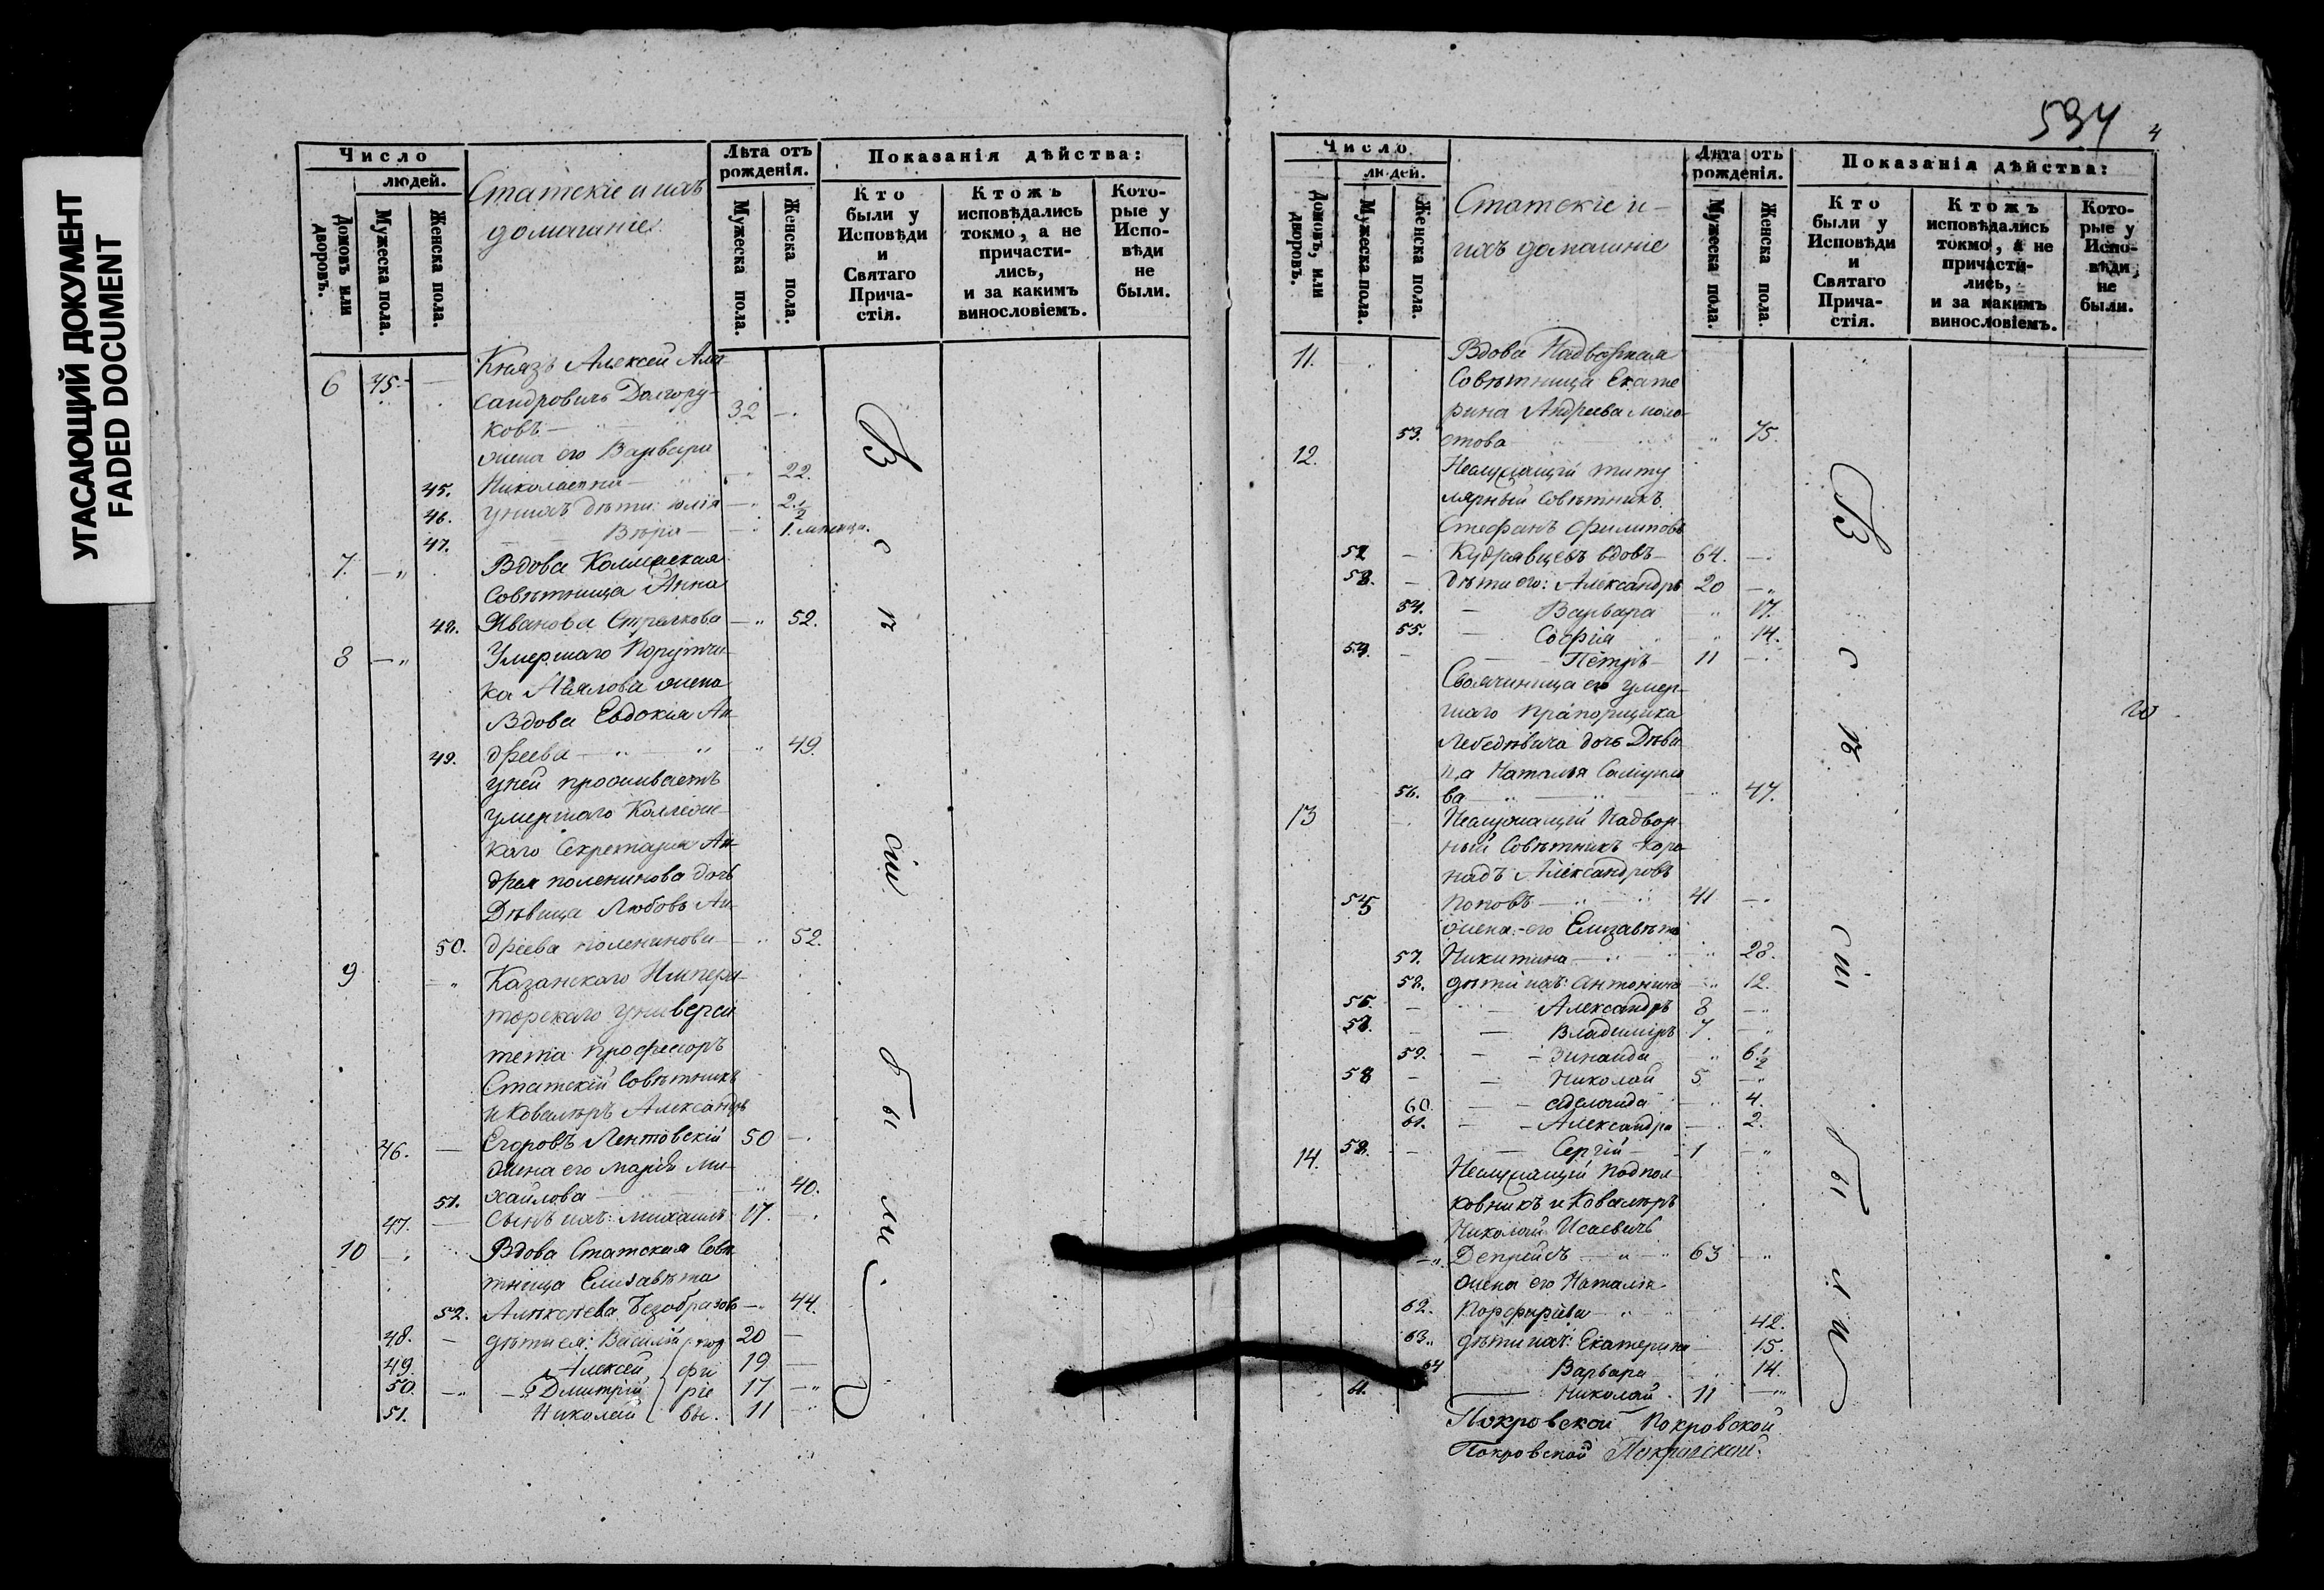 УГАСАЮЩИЙ ДОКУМЕНТ
FADED DOCUMENT
Число
людей.
Домовъ или дворовъ.
Мужеска пола.
Женска пола.
Статскіе и ихъ
домашніе
Лѣта отъ рожденія.
Мужеска пола.
Женска пола.
Показанія дѣйства:
Кто были у Исповѣди и Святаго Прича-стія.
Ктожъ исповѣдались токмо, а не причасти-лись, и за какимъ винословіемъ.
Кото-рые у Испо-вѣди не были.
6 45. — Князь Алексей Але-
сандровичь Долгору-
ковъ — 32 —
жена его Варвара
45. Николаевна — 22.
46. у нихъ дѣти: Юлія — 2 1/2
47. — Вѣра — 1. мѣсяца.
7. — Вдова Коллежская
Совѣтница Анна
48. Иванова Стрелкова — 52.
8 — Умершаго Поручи-
ка жена
Вдова Евдокия Ан-
49. дреева — 49
у ней проживаетъ
умершаго Коллеж-
каго Секретаря Ан-
дрея поленинова дочь
Дѣвица Любовь Ан-
50. дреева поленинова — 52.
9 — Казанскаго Импера-
торскаго Универси
тета профессоръ
Статскій Совѣтникъ
и Ковалѣръ Александръ
46. — Егоровъ Лентовскій 50 —
жена его Марія Ми-
51. хайлова — 40.
47. — Сынъ ихъ: Михаилъ 17. —
10 — Вдова Статская Совѣ
тница Елизавѣта
52. Алѣксѣева Безобразов — 44.
48. — дѣти ея: Василій пор 20 —
49. Алексей фи 19 —
50. — Дмитрій ріе 17 —
51. Николай вы. 11 —
В с ѣ сіи б ы ли
534
4
Число.
людей.
Домовъ, или дворовъ.
Мужеска пола.
Женска пола.
Статскіе и-
ихъ домашніе
Лѣта отъ рожденія.
Мужеска пола.
Женска пола.
Показанія дѣйства:
Кто были у Исповѣди и Святаго Прича-стія.
Ктожъ исповѣдались токмо, а не причасти-лись, и за какимъ винословіемъ.
Кото-рые у Испо-вѣди, не были.
11. Вдова Надворная
Совѣтница Екате
рина Андреева Моло-
53. стова — 75.
12. Неслужащій титу
лярный Совѣтникъ
Стефанъ Филиповъ
52 — Кудрявцевъ вдовъ — 64. —
53. — дѣти его: Александръ 20 —
54. — Варвара 17.
55. — Софія 14.
54. — Пётръ — 11 —
Своячиница его умер-
шаго прапорщика
Лебедѣвича дочь Дѣви
ца Наталья
56. ва — 47.
13 Неслужащій Надвор-
ный Совѣтникъ
Александровъ
55 Поповъ — 41 —
жена его Елизавѣта
57. Никитина — 28.
58. дѣти ихъ: Антонина — 12.
56. — Александръ 8 —
57. — Владиміръ 7. —
59. — Зинаида 6 1/2
58 — Николай 5 —
60. — Аделаида — 4.
61. — Александра — 2.
59. — Сергій — 1 —
14. Неслужащій Подпол-
ковникъ и Ковалѣръ
Николай Исаевичь
Депрейсъ — 63 —
жена его Наталія
62. Порфирьева — 42.
63. дѣти ихъ: Екатерина — 15.
64 Варвара 14.
61. — Николай 11 —
В с ѣ сіи б ы л и
Покровской Покровской
Покровской